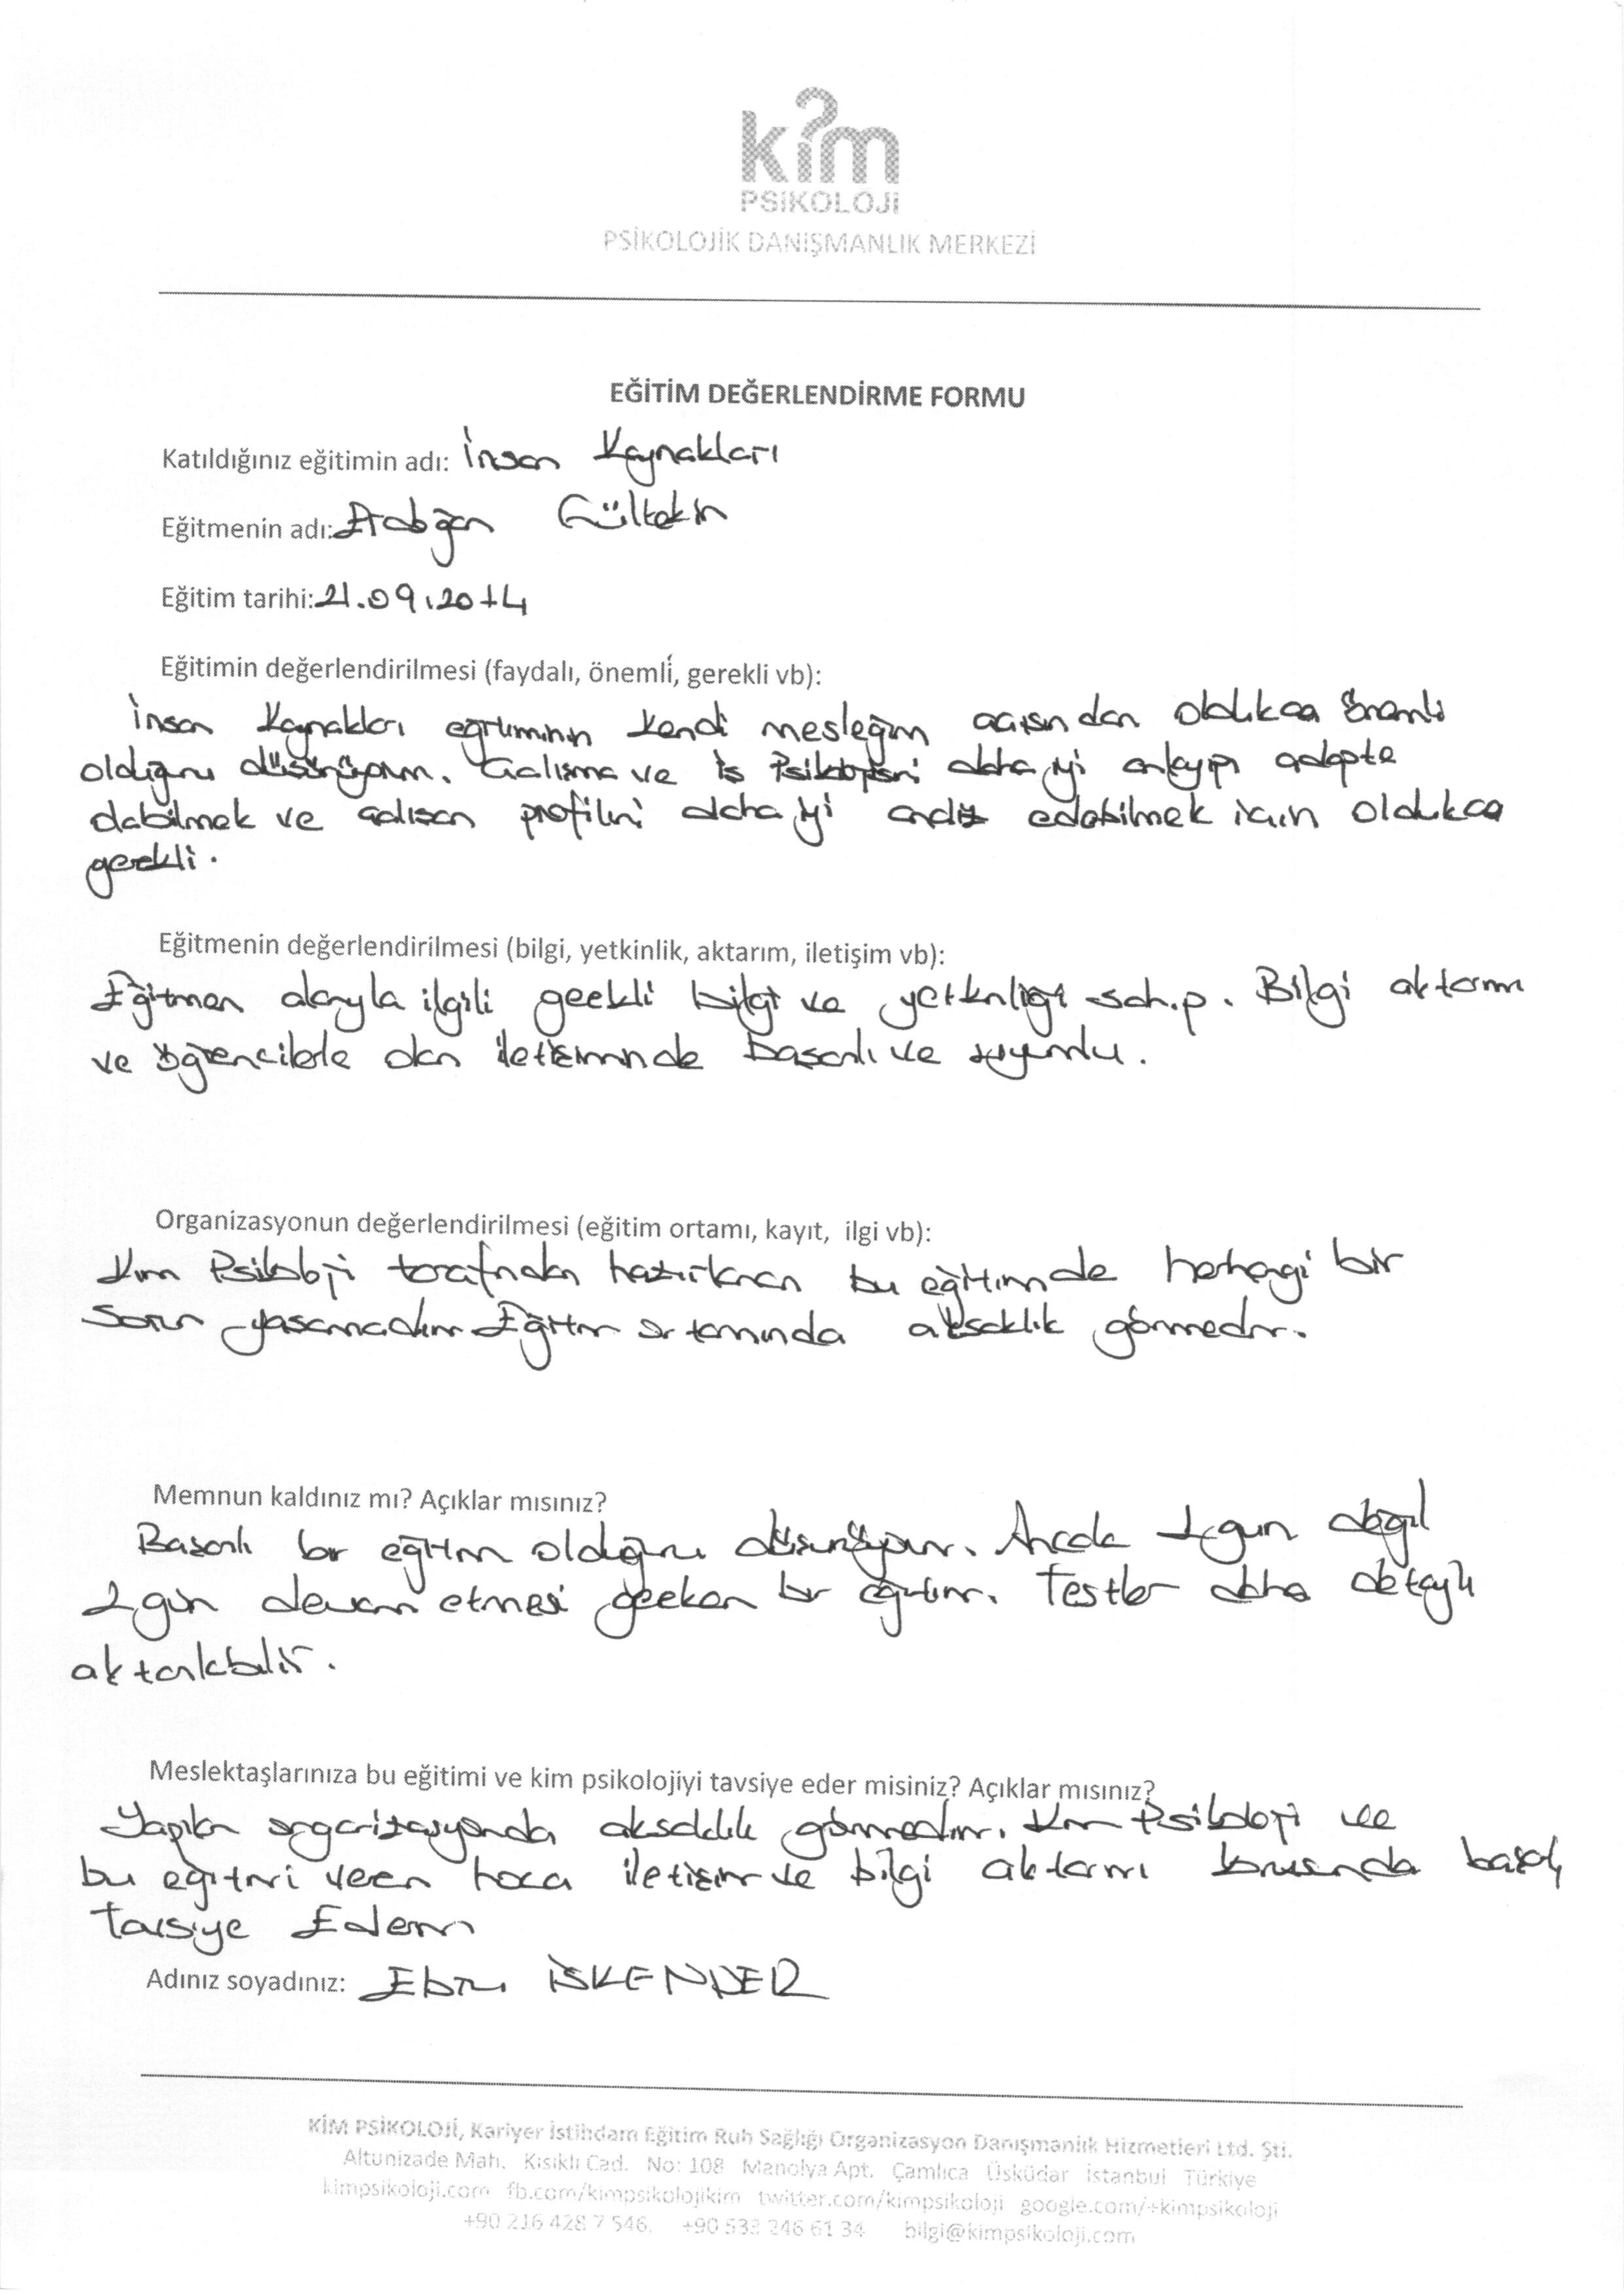 kim
PSİKOLOJİ
PSİKOLOJİK DANIŞMANLIK MERKEZİ
EĞİTİM DEĞERLENDİRME FORMU
Katıldığınız eğitimin adı: İnsan Kaynakları
Eğitmenin adı: Erdoğan Gültekin
Eğitim tarihi: 21.09.2014
Eğitimin değerlendirilmesi (faydalı, önemli, gerekli vb):
İnsan Kaynakları eğitiminin kendi mesleğim açısından oldukça önemli
olduğunu düşünüyorum. Çalışma ve İş Psikolojisini daha iyi anlayıp adapte
olabilmek ve çalışan profilini daha iyi analiz edebilmek için oldukça
gerekli.
Eğitmenin değerlendirilmesi (bilgi, yetkinlik, aktarım, iletişim vb):
Eğitmen alanıyla ilgili gerekli bilgi ve yetkinliğe sahip. Bilgi aktarımı
ve öğrencilerle olan iletişiminde başarılı ve uyumlu.
Organizasyonun değerlendirilmesi (eğitim ortamı, kayıt, ilgi vb):
Kim Psikoloji tarafından hazırlanan bu eğitimde herhangi bir
sorun yaşamadım Eğitim ortamında aksaklık görmedim.
Memnun kaldınız mı? Açıklar mısınız?
Başarılı bir eğitim olduğunu düşünüyorum. Ancak 1 gün değil
2 gün devam etmesi gereken bir eğitim. Testler daha detaylı
aktarılabilir.
Meslektaşlarınıza bu eğitimi ve kim psikolojiyi tavsiye eder misiniz? Açıklar mısınız?
Yapılan organizasyonda aksaklık görmedim. Kim Psikoloji ve
bu eğitimi veren hoca iletişim ve bilgi aktarımı konusunda başarılı
Tavsiye Ederim
Adınız soyadınız: Ebru İSKENDER
KİM PSİKOLOJİ, Kariyer İstihdam Eğitim Ruh Sağlığı Organizasyon Danışmanlık Hizmetleri Ltd. Şti.
Altunizade Mah. Kısıklı Cad. No: 108 Manolya Apt. Çamlıca Üsküdar İstanbul Türkiye
kimpsikoloji.com fb.com/kimpsikolojikim twitter.com/kimpsikoloji google.com/+kimpsikoloji
+90 216 428 7 546. +90 533 246 61 34 bilgi@kimpsikoloji.com